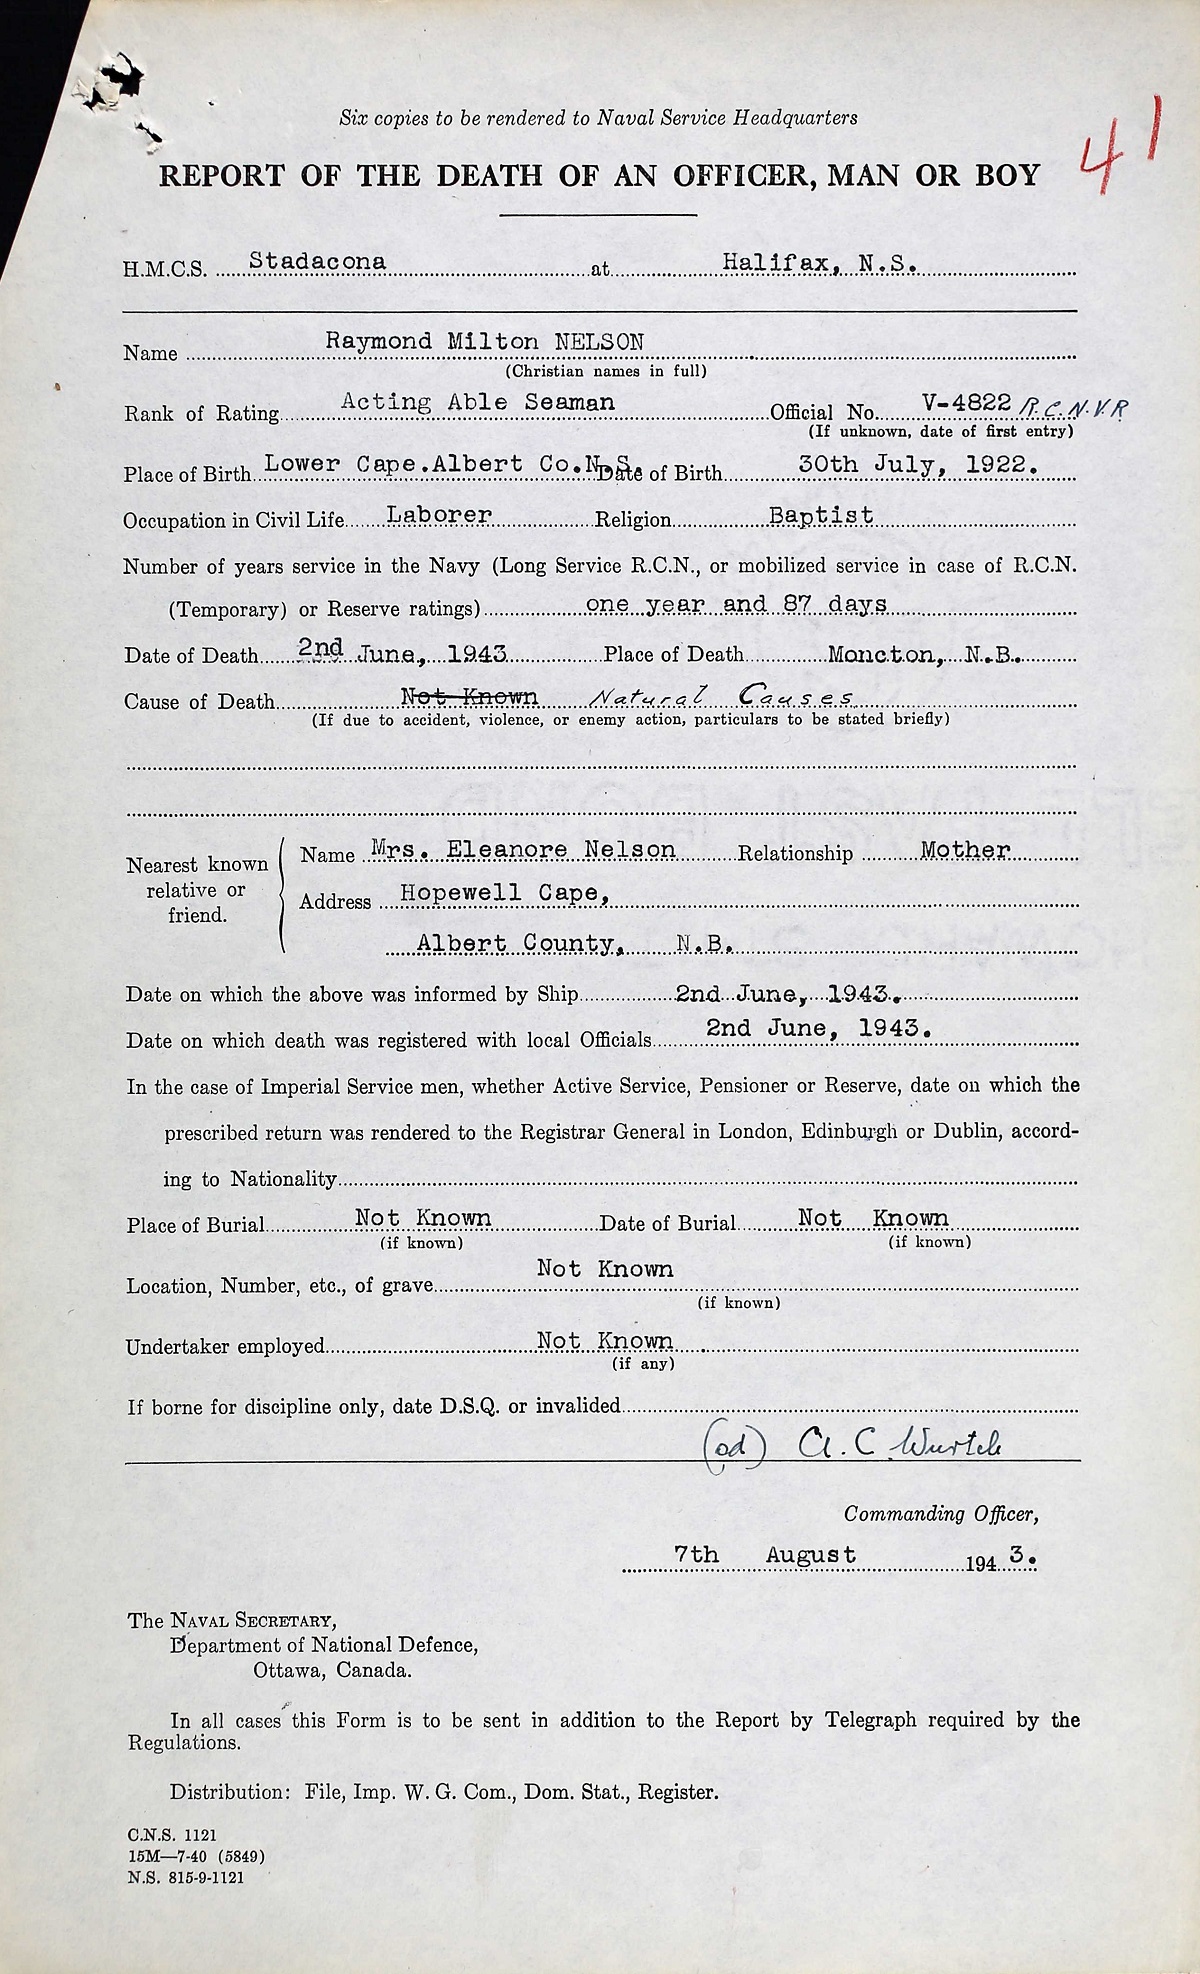 Six copies to be rendered to Naval Service Headquarters
41
REPORT OF THE DEATH OF AN OFFICER, MAN OR BOY
H.M.C.S. Stadacona at Halifax, N.S.
Name Raymond Milton NELSON
(Christian names in full)
Rank of Rating Acting Able Seaman Official No. V-4822 R.C.N.V.R
(If unknown, date of first entry)
Place of Birth Lower Cape.Albert Co.N.S. Date of Birth 30th July, 1922.
Occupation in Civil Life Laborer Religion Baptist
Number of years service in the Navy (Long Service R.C.N., or mobilized service in case of R.C.N.
(Temporary) or Reserve ratings) one year and 87 days
Date of Death 2nd June, 1943 Place of Death Moncton, N.B.
Cause of Death Not Known Natural Causes
(If due to accident, violence, or enemy action, particulars to be stated briefly)
Nearest known relative or friend.
Name Mrs. Eleanore Nelson Relationship Mother
Address Hopewell Cape,
Albert County, N.B.
Date on which the above was informed by Ship 2nd June, 1943.
Date on which death was registered with local Officials 2nd June, 1943.
In the case of Imperial Service men, whether Active Service, Pensioner or Reserve, date on which the
prescribed return was rendered to the Registrar General in London, Edinburgh or Dublin, accord-
ing to Nationality
Place of Burial Not Known Date of Burial Not Known
(if known) (if known)
Location, Number, etc., of grave Not Known
(if known)
Undertaker employed Not Known
(if any)
If borne for discipline only, date D.S.Q. or invalided
A.C Wurtele
Commanding Officer,
7th August 1943.
The NAVAL SECRETARY,
Department of National Defence,
Ottawa, Canada.
In all cases this Form is to be sent in addition to the Report by Telegraph required by the
Regulations.
Distribution: File, Imp. W. G. Com., Dom. Stat., Register.
C.N.S. 1121
15M—7-40 (5849)
N.S. 815-9-1121